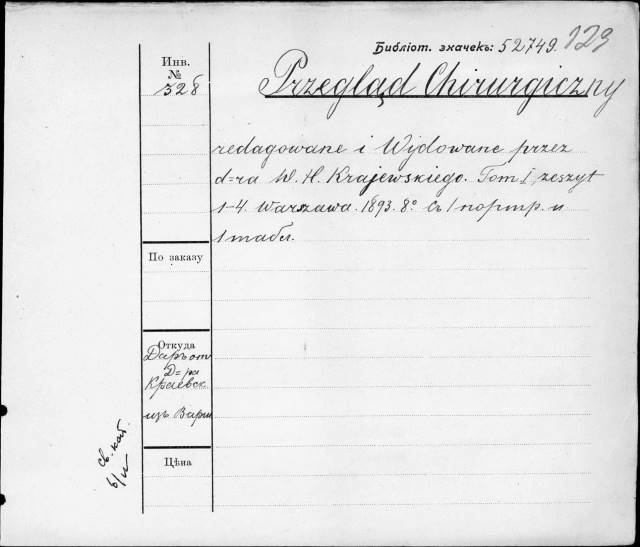 Библіот. значекъ: 52749. 123
Инв.
№
328
Przegląd Chirurgiczny
redagowane i Wydowane przez
d=ra W. H. Krajewskiego. Tom I, zeszyt
1-4. Warszawa. 1893. 8° съ 1 портр. и
1 табл.
По заказу
Откуда
Даръ от
Д=ра
Краевск
изъ Варш
Цѣна
св. кат.